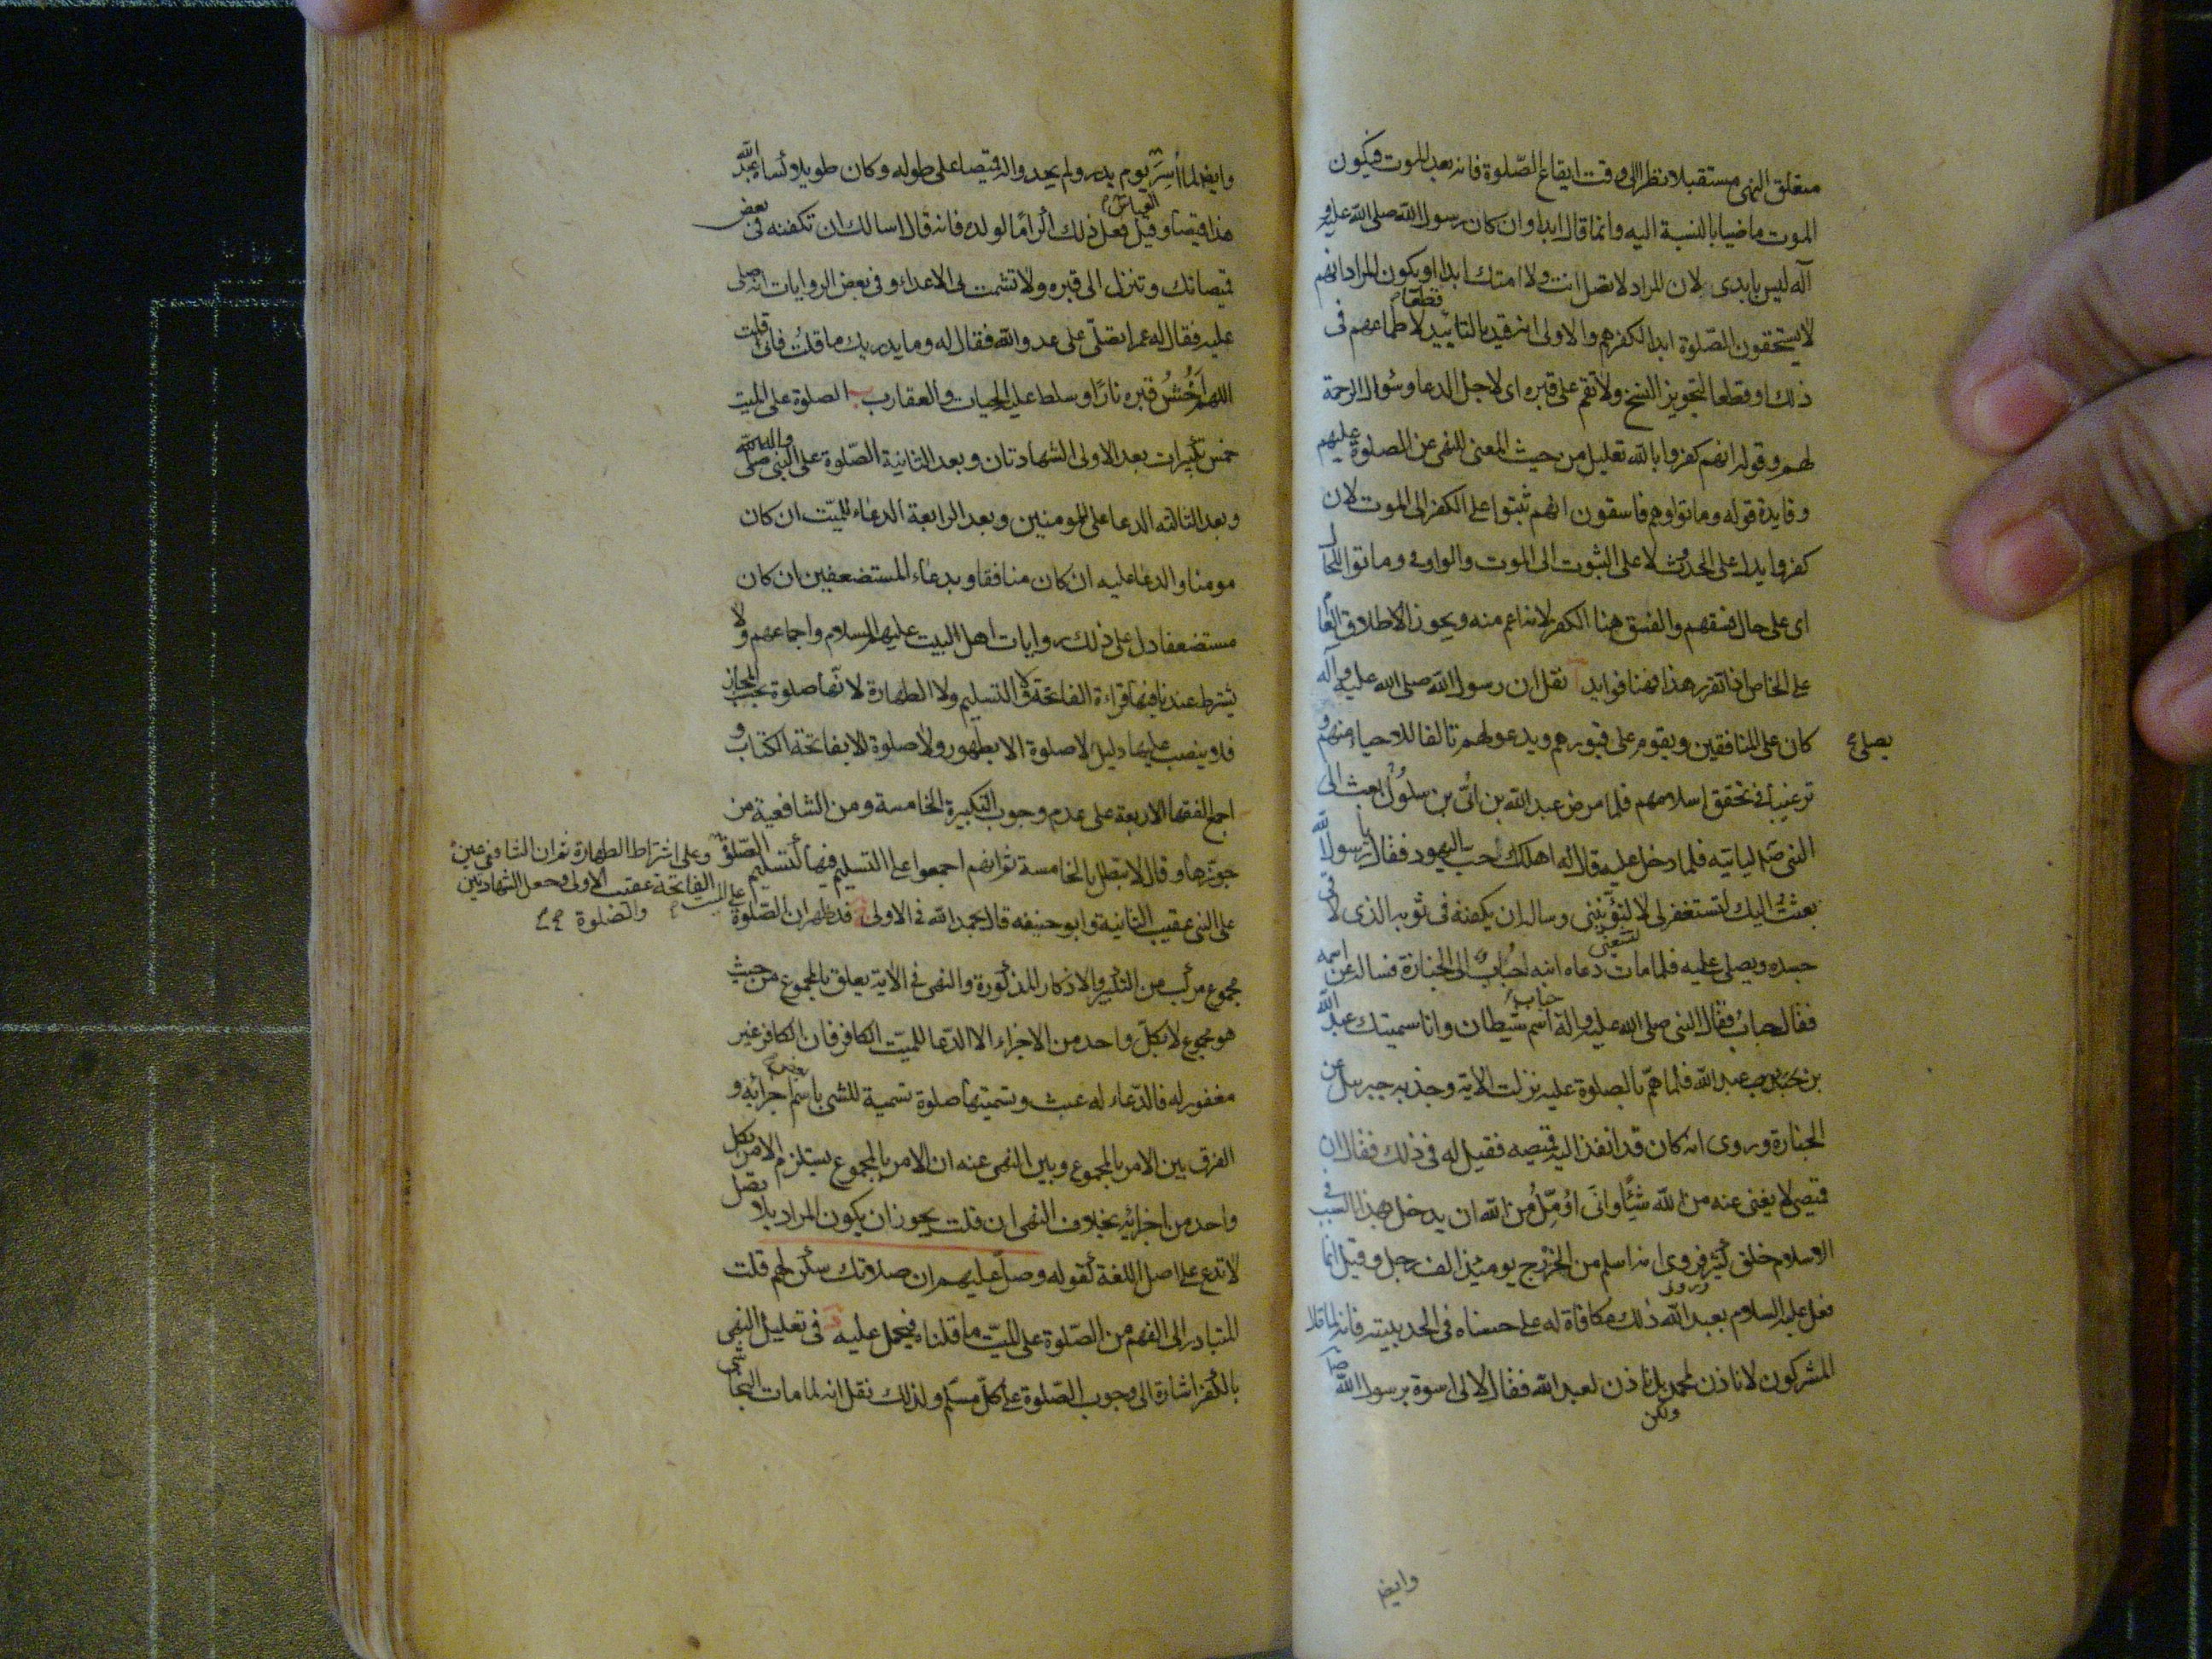 متعلق النهى مستقبلا نظرا الى وقت ايقاع الصّلوة فانه بعد الموت فيكون
الموت ماضيا بالنسبة اليه وانما قال ابدا وان كان رسول الله صلى الله عليه و
آله ليس بابدى لان المراد لا تصل انت ولا امتك ابدا او يكون المراد انهم
لا يستحقون الصّلوة ابدا لكفرهم والاولى انه قيد بالتاييد قطعا لاطماعهم فى
ذلك او قطعا لتجويز النسخ ولا تقم على قبره اى لاجل الدعا وسؤال الرحمة
لهم وقوله انهم كفروا بالله تعليل من حيث المعنى للنهى عن الصلوة عليهم
وفايدة قوله وماتوا وهم فاسقون انهم ثبتوا على الكفر الى الموت لان
كفروا يدل على الحدوث لا على الثبوت الى الموت والواو فى وماتوا للحال
اى على حال فسقهم والفسق هنا الكفر لانه اعم منه ويجوز الاطلاق العام
على الخاص اذا تقرر هذا فهنا فوايد ا نقل ان رسول الله صلى الله عليه وآله
كان يصلى على المنافقين ويقوم على قبورهم ويدعو لهم تالفا للاحياء منهم و
ترغيبا فى تحقق اسلامهم فلما مرض عبد الله بن ابُىّ بن سلُول بعث الى
النبى صلم لياتيه فلما دخل عليه قال له اهلكك حب اليهود فقال يا رسول الله
بعثتُ اليك لتستغفر لى لا لتؤنّبنى وساله ان يكفنه فى ثوبه الذى لاقى
جسده ويصلى عليه فلما مات دعاه ابنه حُباب الى الجنازة فساله عن اسمه
فقال حبابُ فقال النبى صلى الله عليه واله حباب اسم شيطان وانا سميتك عبد الله
بن عبد الله فلما همّ بالصلوة عليه نزلت الاية وجذبه جبرييل عن
الجنازة وروى انه كان قد انفذ اليه قميصه فقيل له فى ذلك فقال ان
قميصى لا يغنى عنه من الله شيًا وانّى اؤمّل من الله ان يدخل بهذا السبب فى
الاسلام خلق كثير فروى انه اسلم من الخزرج يوميذ الف رجل وقيل انما
فعل عليه السلام بعبد الله ذلك مكافاة له على حسناه فى الحديبية فانه لما قال
المشركون لا ناذن لمحمد ولكن ناذن لعبد الله فقال لا لى اسوة برسول الله
وايض
وايض لما اُسِرَ يوم بدر ولم يجدوا له قميصا على طوله وكان طويلا كساه عبد الله
العباس
هذا قميصه وقيل فعل ذلك اكرامًا لولده فانه قال اسالك ان تكفنه فى بعض
قميصانك وتنزل الى قبره ولا تشمت بى الاعداء وفى بعض الروايات انه صلى
عليه فقال له عمر اتصلّى على عدو الله فقال له وما يدريك ما قلتُ فانى قلت
اللهم احُشُ قبره نارًا وسلط عليه الحيات والعقارب ب الصلوة على الميت
خمس تكبيرات بعد الاولى الشهادتان وبعد الثانية الصّلوة على النبى صلى الله واله
وبعد الثالثه الدعا على المومنين وبعد الرابعة الدعاء للميّت ان كان
مومنا والدعا عليه ان كان منافقا وبدعاء المستضعفين ان كان
مستضعفا دل على ذلك روايات اهل البيت عليهم السلام واجماعهم ولا
يشترط عندنا فيها قراءة الفاتحة ولا التسليم ولا الطهارة لانّها صلوة بحسب المجاز
فلا ينصب عليها دليل لا صلوة الا بطهور ولا صلوة الا بفاتحة الكتاب و
اجمع الفقها الاربعة على عدم وجوب التكبيرة الخامسة ومن الشافعية من
جوّزها وقال لا تبطل بالخامسة ثم انهم اجمعوا على التسليم فيها كتسليم الصّلوة
وعلى اشتراط الطهارة ثم ان الشافعى عين
الفاتحة عقيب الاولى وجعل الشهادتين
والصلوة
على النبى عقيب الثانية وابو حنيفه قال يحمد الله فى الاولى قد ظهر ان الصّلوة على الميت
مجموع مركب من التكبير والاذكار المذكورة والنهى فى الاية يعلق بالمجموع من حيث
هو مجموع لا بكلّ واحد من الاجزاء الا الدّعا للميّت الكافر فان الكافر غير
مغفور له فالدّعاء له عبث وتسميتها صلوة تسمية للشى باسم جزائه و
الفرق بين الامر بالمجموع وبين النهى عنه ان الامر بالمجموع يستلزم الامر بكل
واحد من اجزائه بخلاف النهى ان قلت يجوز ان يكون المراد بلا تصل
لا تدع على اصل اللغة كقوله وصلّ عليهم ان صلاتك سكن لهم قلت
المتبادر الى الفهم من الصّلوة على الميّت ما قلناه فيحمل عليه فى تعليل النهى
بالكفر اشارة الى وجوب الصّلوة على كلّ مسلم ولذلك نقل انه لما مات النجاشى